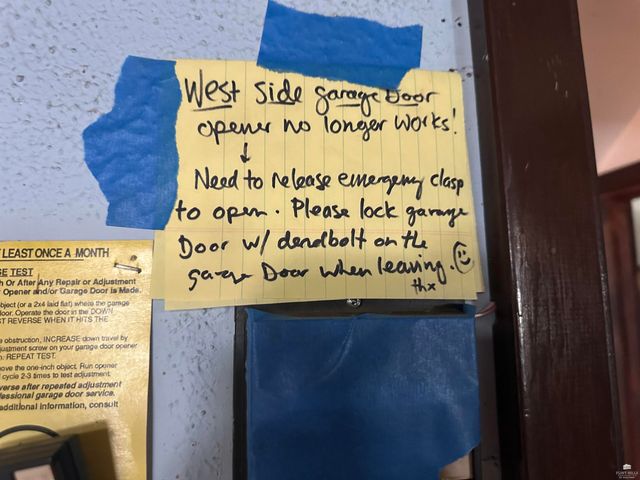 West Side garage Door
opener no longer works!
Need to release emergency clasp
to open. Please lock garage
Door w/ deadbolt on the
garage Door when leaving. ☺
thx
LEAST ONCE A MONTH
SE TEST
h Or After Any Repair or Adjustment
Opener and/or Garage Door Is Made.
bject (or a 2x4 laid flat) where the garage
oor. Operate the door in the DOWN
ST REVERSE WHEN IT HITS THE
e obstruction, INCREASE down travel by
justment screw on your garage door opener
n. REPEAT TEST.
ove the one-inch object. Run opener
cycle 2-3 times to test adjustment.
verse after repeated adjustment
fessional garage door service.
additional information, consult
FLINT HILLS